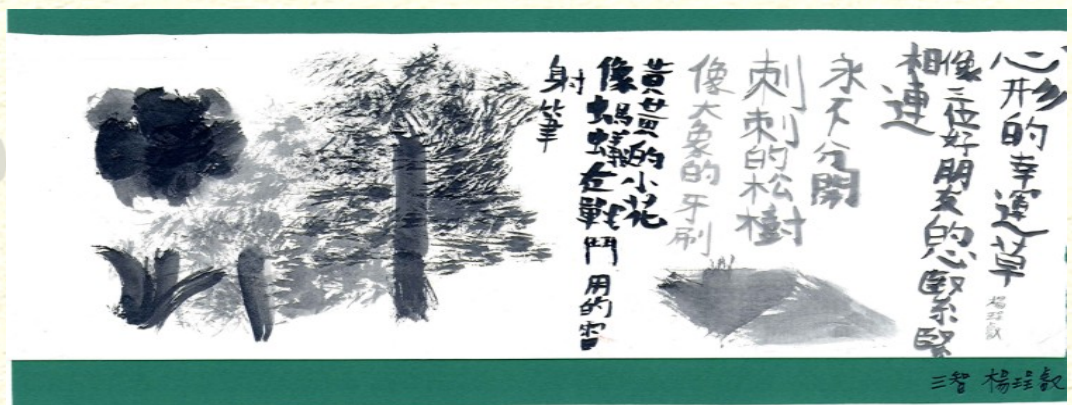 心形的幸運草
楊珵叡
像三位好朋友的心緊緊
相連
永不分開
刺刺的松樹
像大象的牙刷
黃黃的小花
像螞蟻在戰鬥用的雷
射筆
三智 楊珵叡